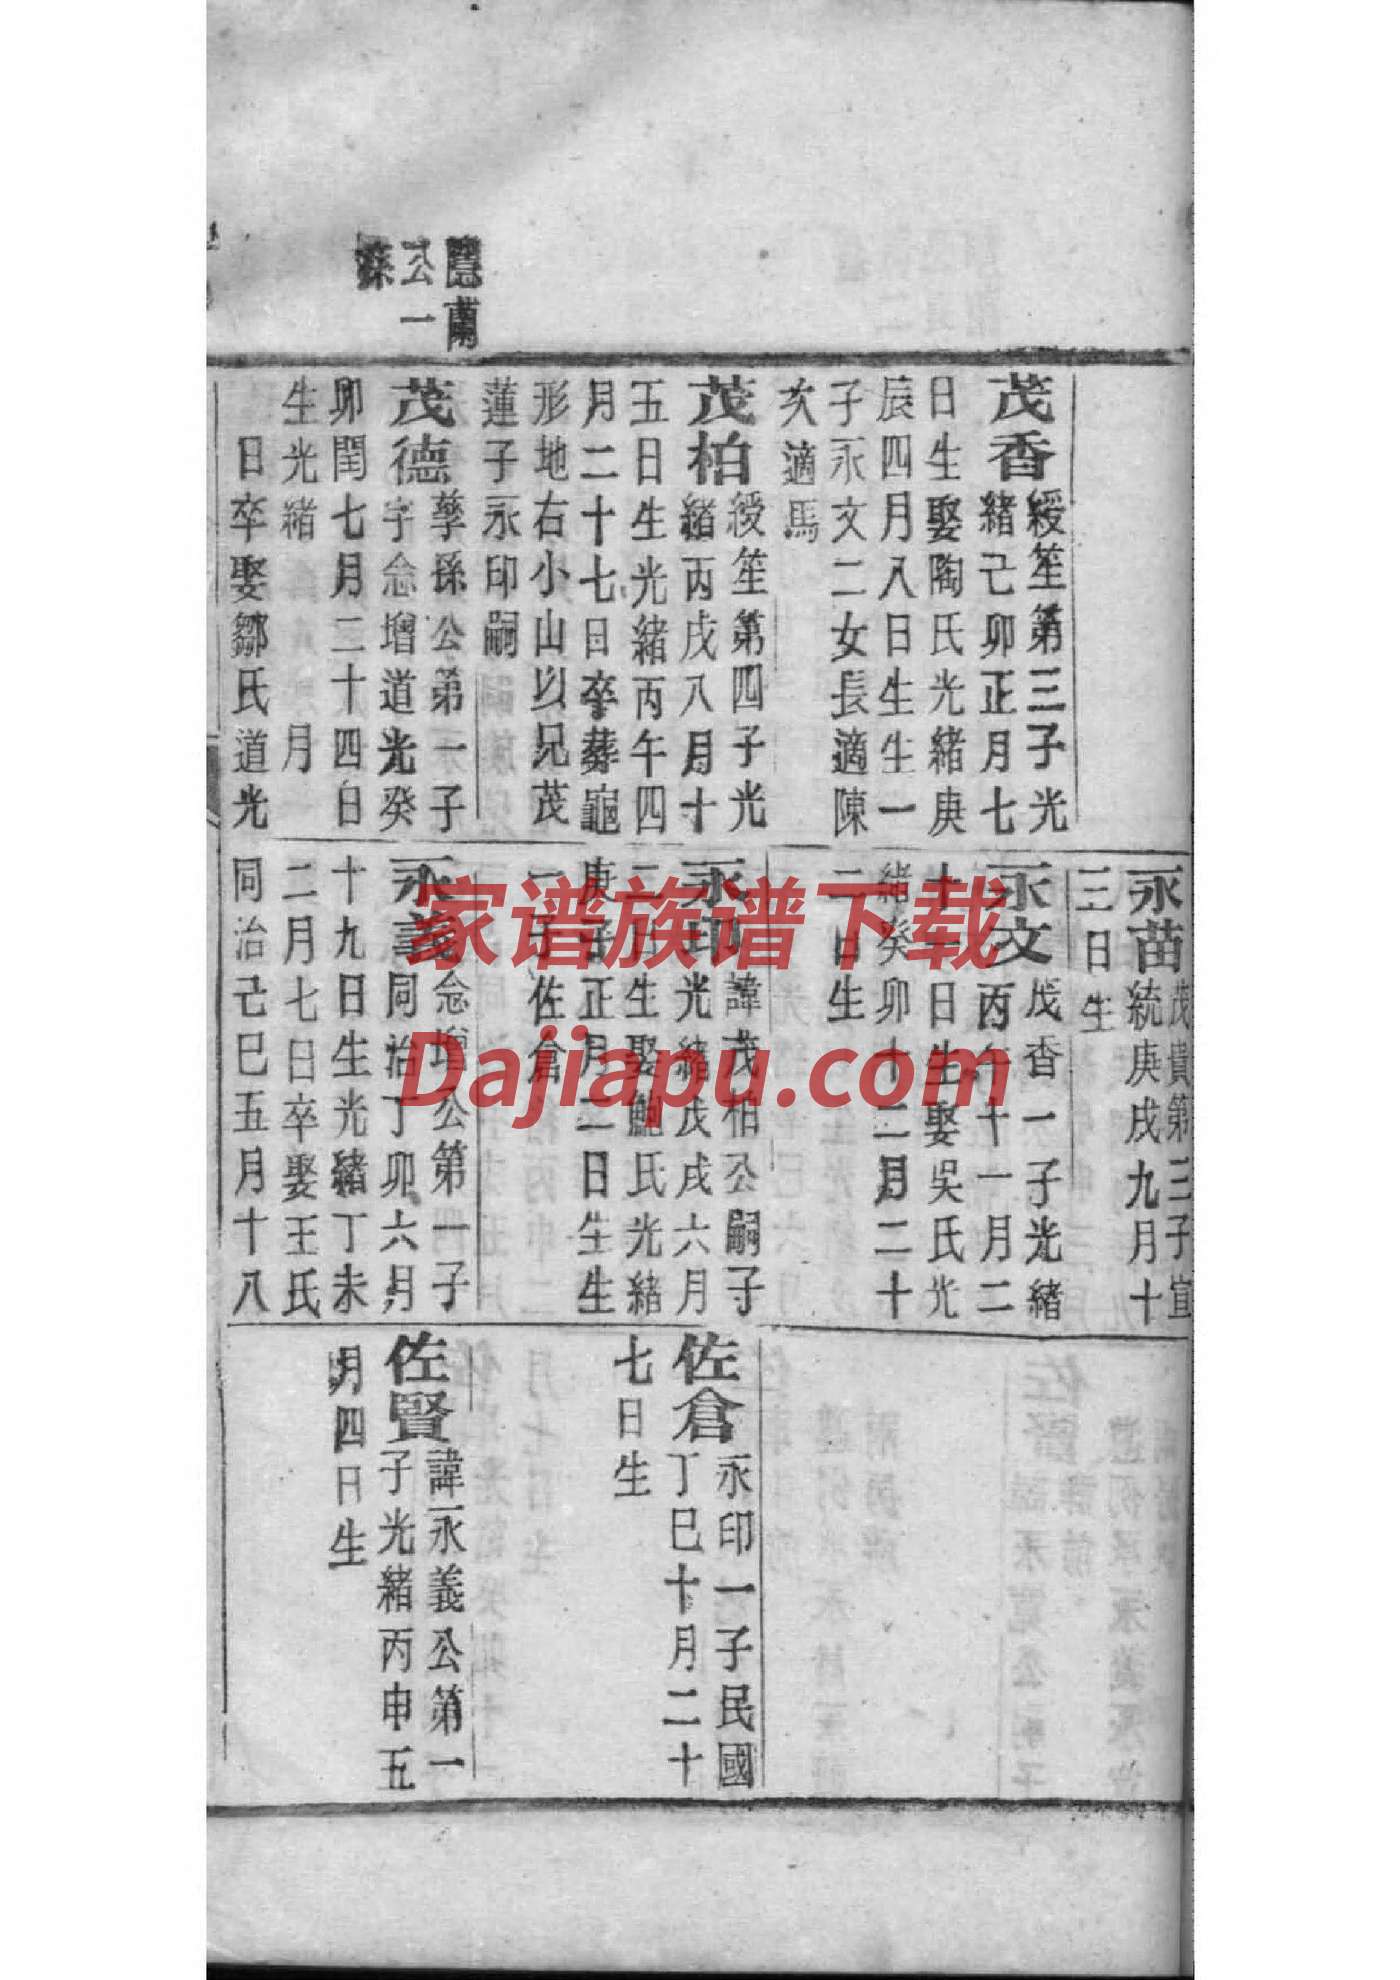 蘭
公一
茂香
綬笙第三子光
緒己卯正月七
日生娶陶氏光緒庚
辰四月八日生生一
子永文二女長適陳
次適馬
茂柏
綬笙第四子光
緒丙戌八月十
五日生光緒丙午四
月二十七日卒葬龜
形地右小山以兄茂
蓮子永印嗣
茂德
孳孫公第一子
字念增道光癸
卯閏七月二十四日
生光緒 月
日卒娶鄒氏道光
永苗
茂貴第三子宣
統庚戌九月十
三日生
永文
茂香一子光緒
丙午十一月二
十 日生娶吳氏光
緒癸卯十二月二十
二日生
永印
諱茂柏公嗣子
光緒戊戌六月
二 日生娶鮑氏光緒
庚子正月二日生生
一子佐倉
永義
念增公第一子
同治丁卯六月
十九日生光緒丁未
二月七日卒娶王氏
同治己巳五月十八
佐倉
永印一子民國
丁巳十月二十
七日生
佐賢
諱永義公第一
子光緒丙申五
月四日生
家谱族谱下载
Dajiapu.com